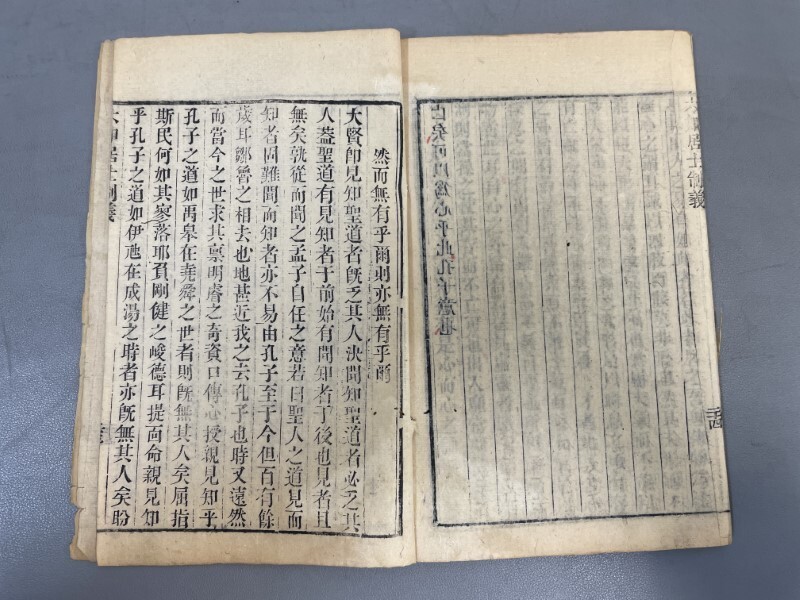 已矣可以爲心乎此孔子意也
然而無有乎爾則亦無有乎爾
大賢卽見知聖道者旣乏其人決聞知聖道者必乏其
人蓋聖道有見知者于前始有聞知者于後也見者且
無矣孰從而聞之孟子自任之意若曰聖人之道見而
知者固難聞而知者亦不易由孔子至于今但百有餘
歲耳鄒魯之相去也地甚近我之去孔子也時又遠然
而當今之世求其稟明睿之奇資口傳心授親見知乎
孔子之道如禹皋在堯舜之世者則旣無其人矣屈指
斯民何如其寥落耶負剛健之峻德耳提面命親見知
乎孔子之道如伊虺在成湯之時者亦旣無其人矣盼